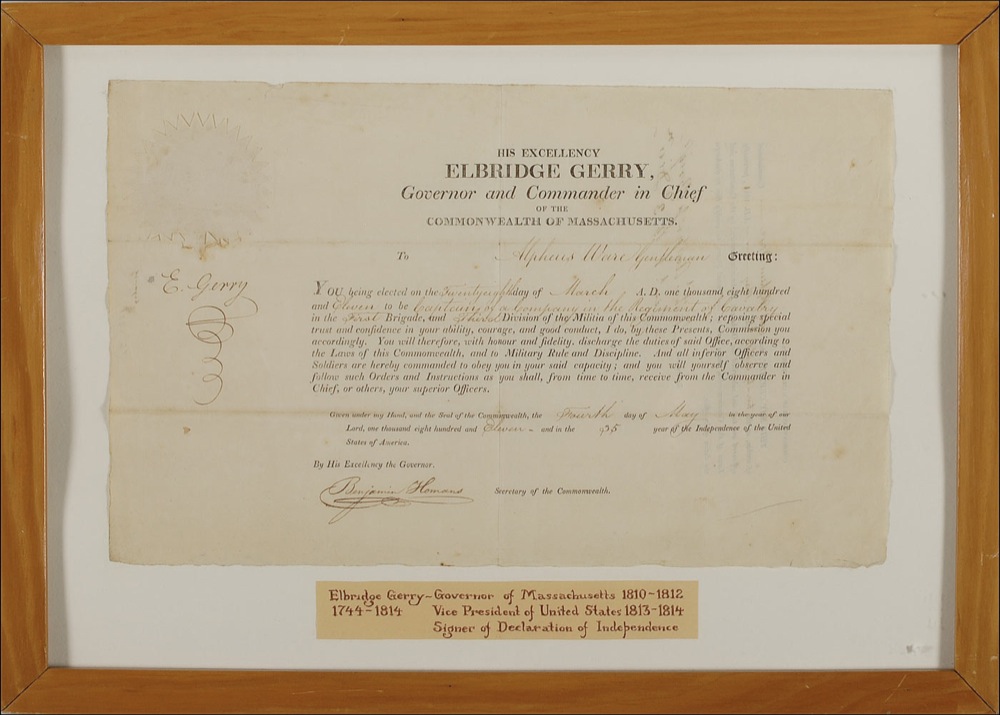 HIS EXCELLENCY
ELBRIDGE GERRY,
Governor and Commander in Chief
OF THE
COMMONWEALTH OF MASSACHUSETTS.
To Alpheus Ware Gentleman Greeting:
E. Gerry
YOU being elected on the Twentyeighth day of March A. D. one thousand eight hundred
and Eleven to be of a Company in the Regiment of Cavalry
in the First Brigade, and Third Division of the Militia of this Commonwealth; reposing special
trust and confidence in your ability, courage, and good conduct, I do, by these Presents, Commission you
accordingly. You will therefore, with honour and fidelity, discharge the duties of said Office, according to
the Laws of this Commonwealth, and to Military Rule and Discipline. And all inferior Officers and
Soldiers are hereby commanded to obey you in your said capacity; and you will yourself observe and
follow such Orders and Instructions as you shall, from time to time, receive from the Commander in
Chief, or others, your superior Officers.
Given under my Hand, and the Seal of the Commonwealth, the Fourth day of May in the year of our
Lord, one thousand eight hundred and Eleven - and in the 35 year of the Independence of the United
States of America.
By His Excellency the Governor.
Benjamin Homans Secretary of the Commonwealth.
Elbridge Gerry - Governor of Massachusetts 1810-1812
1744-1814 Vice President of United States 1813-1814
Signer of Declaration of Independence